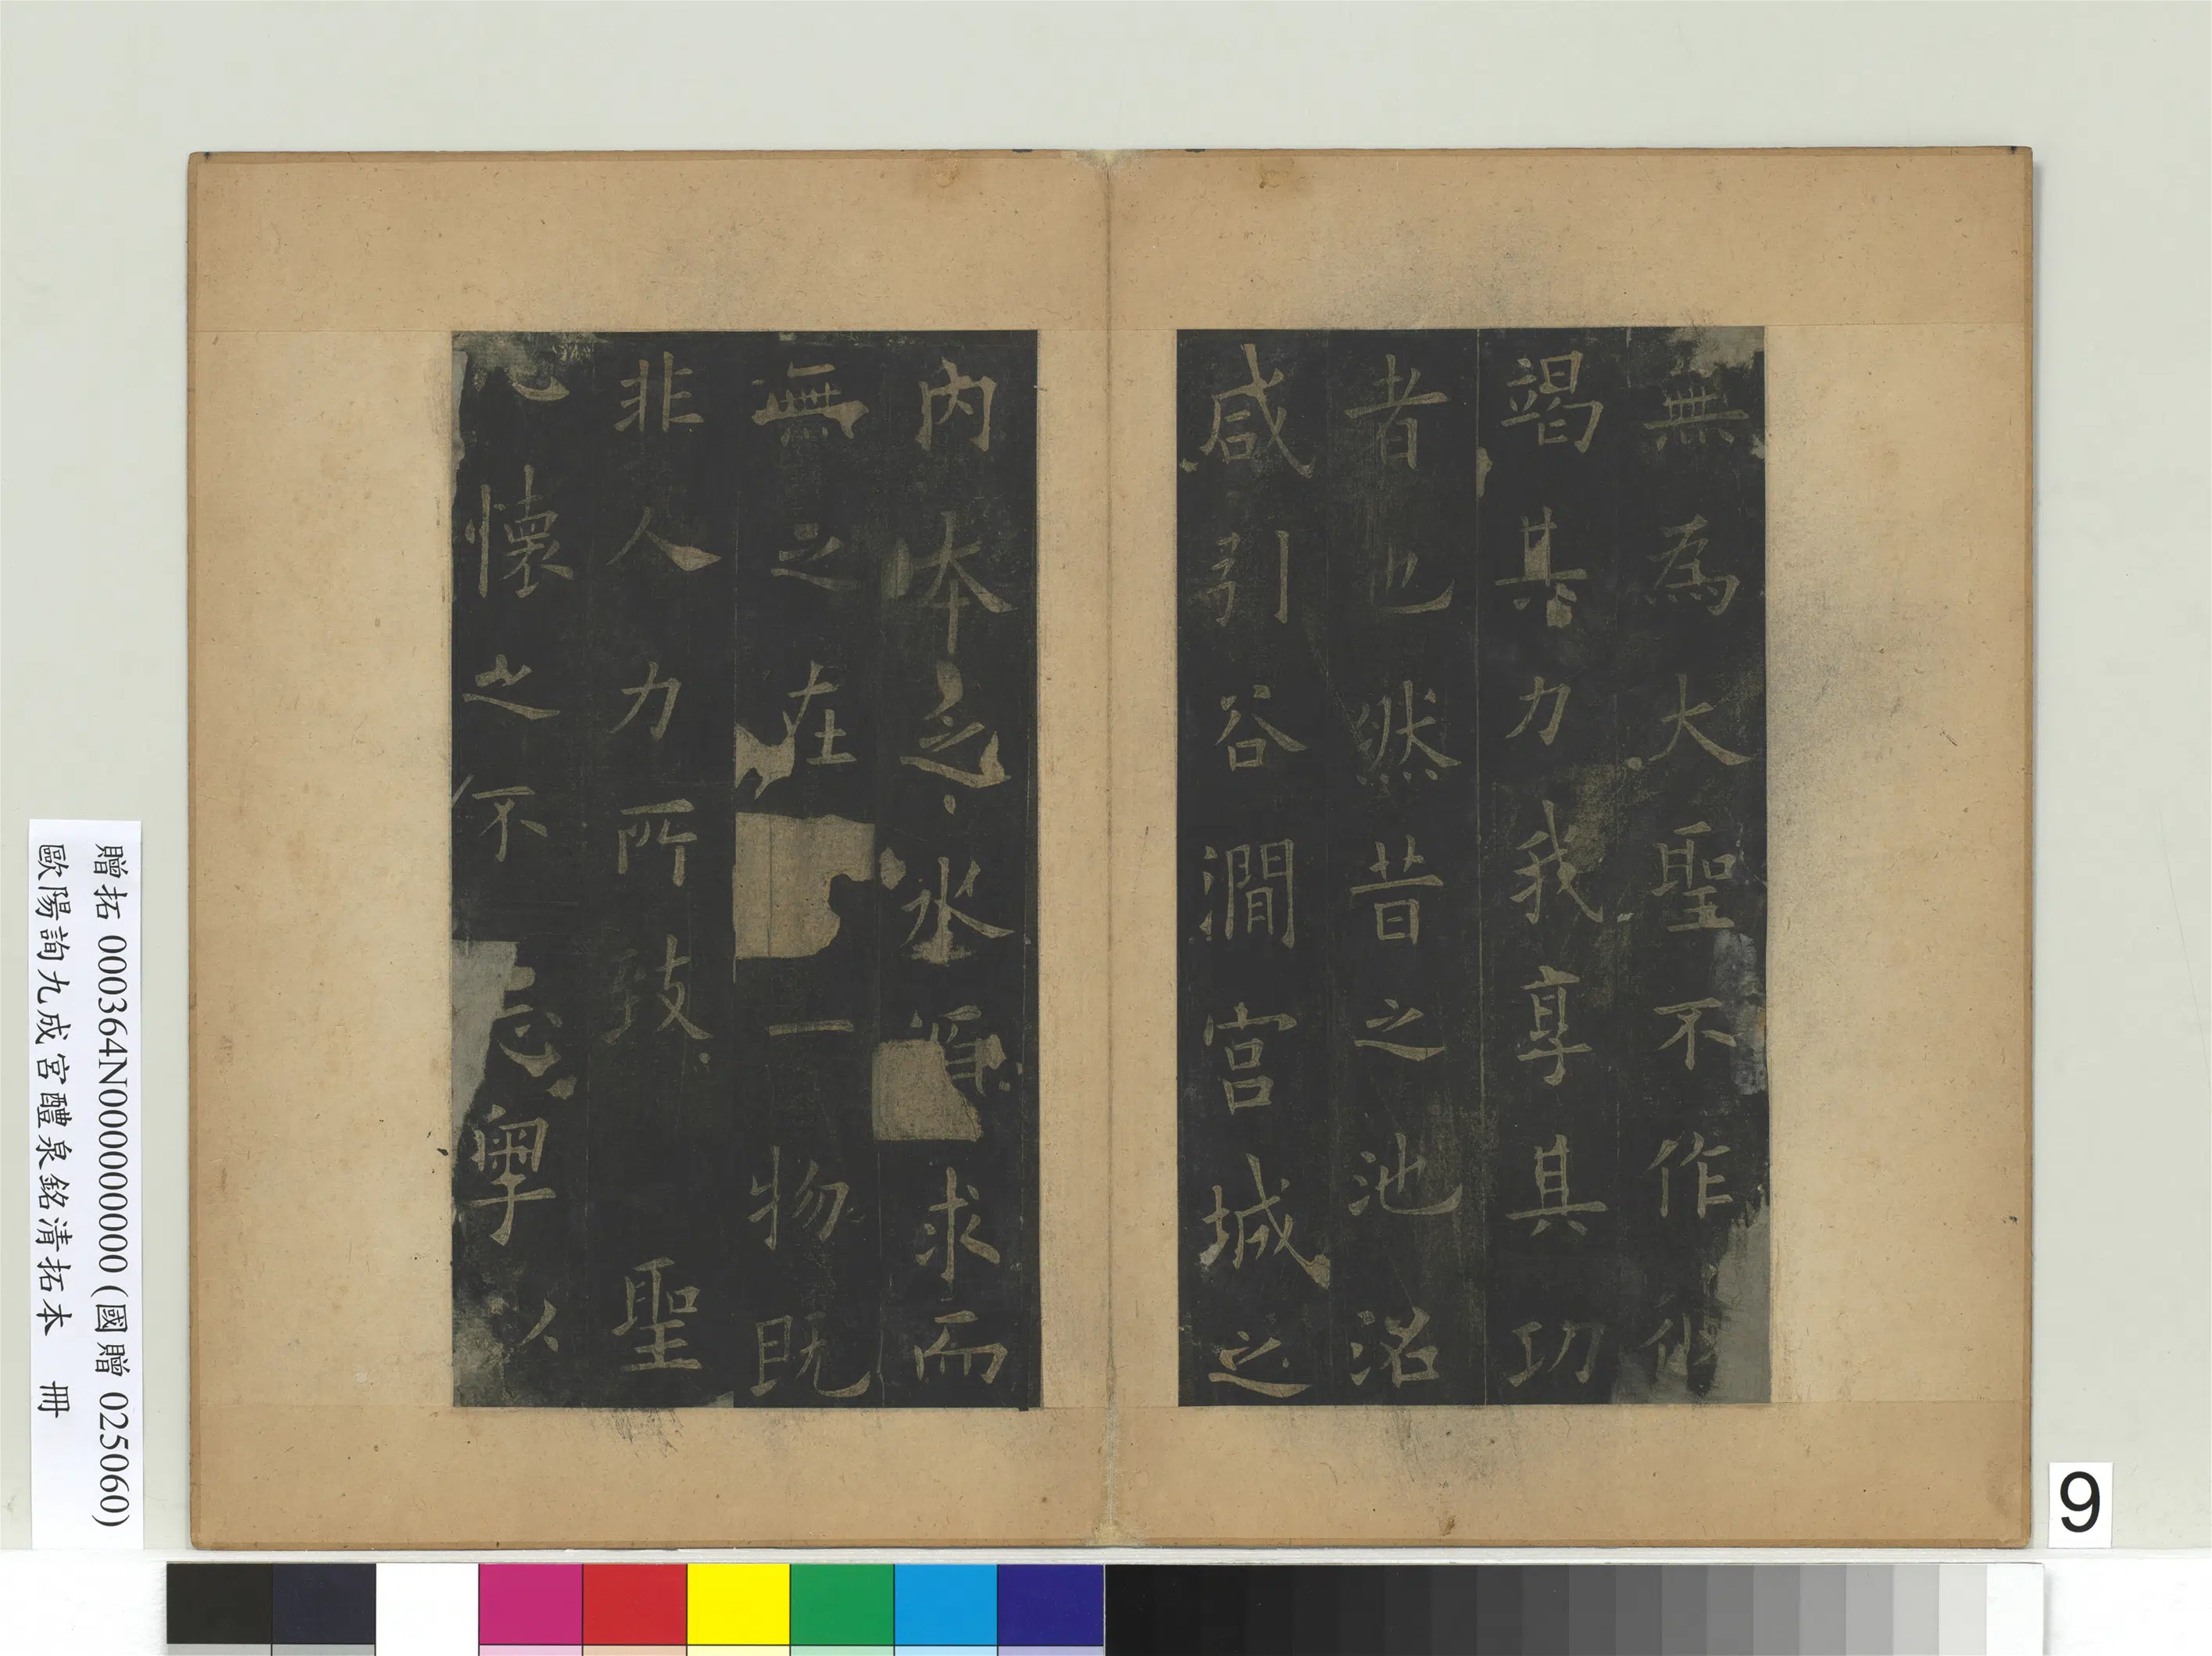 無為大聖不作彼
竭其力我享其功
者也然昔之池沼
咸引谷澗宮城之
內本乏水源求而
無之在一物既
非人力所致聖
心懷之不忘粵以
贈拓 000364N000000000 (國贈 025060)
歐陽詢九成宮醴泉銘清拓本 冊
9